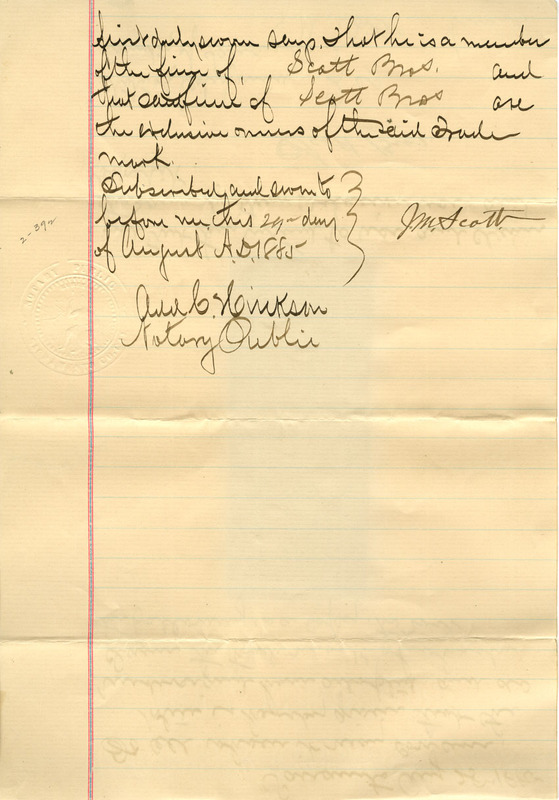 first duly sworn says. That he is a member
of the firm of, Scott Bros. and
that said firm of Scott Bros are
the exclusive owners of the said Trade
mark.
Subscribed and sworn to
before me, this 29 day
of August A.D. 1885
J M Scott
2-392
C. Hinkson
Notary Public